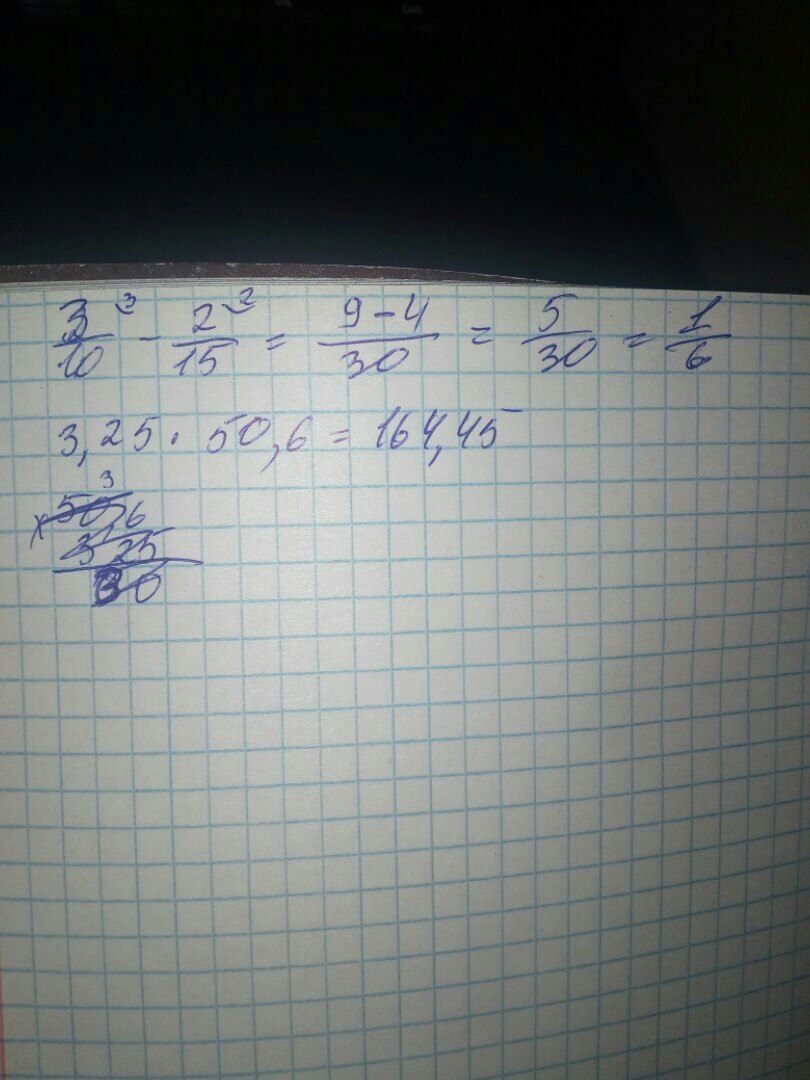 3/10 ³ - 2/15 ² = 9-4/30 = 5/30 = 1/6
3,25 · 50,6 = 164,45
3
x 50,6
3,25
30